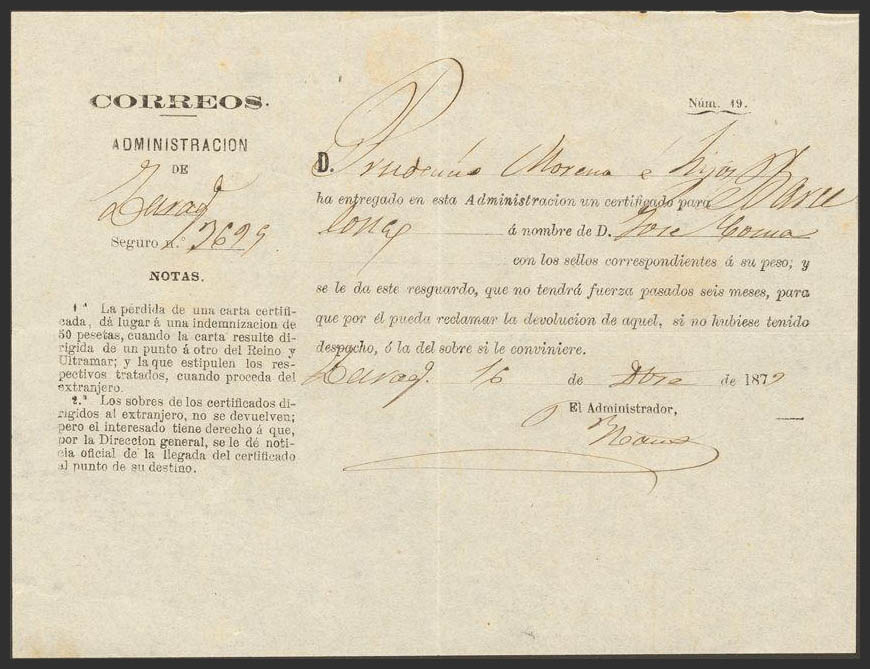 CORREOS.
ADMINISTRACION
DE
Zarag.ª
Seguro n.º 3699
NOTAS.
1.ª La pérdida de una carta certifi-
cada, dá lugar á una indemnizacion de
50 pesetas, cuando la carta resulte di-
rigida de un punto á otro del Reino y
Ultramar; y la que estipulen los res-
pectivos tratados, cuando proceda del
extranjero.
2.ª Los sobres de los certificados di-
rigidos al extranjero, no se devuelven;
pero el interesado tiene derecho á que,
por la Direccion general, se le dé noti-
cia oficial de la llegada del certificado
al punto de su destino.
Núm. 19.
D. Prudencio Moreno e hijos
ha entregado en esta Administracion un certificado para Barce
lona á nombre de D. Jose Coma
con los sellos correspondientes á su peso; y
se le da este resguardo, que no tendrá fuerza pasados seis meses, para
que por él pueda reclamar la devolucion de aquel, si no hubiese tenido
despacho, ó la del sobre si le conviniere.
Zarag. 16 de Dbre de 1879
El Administrador,